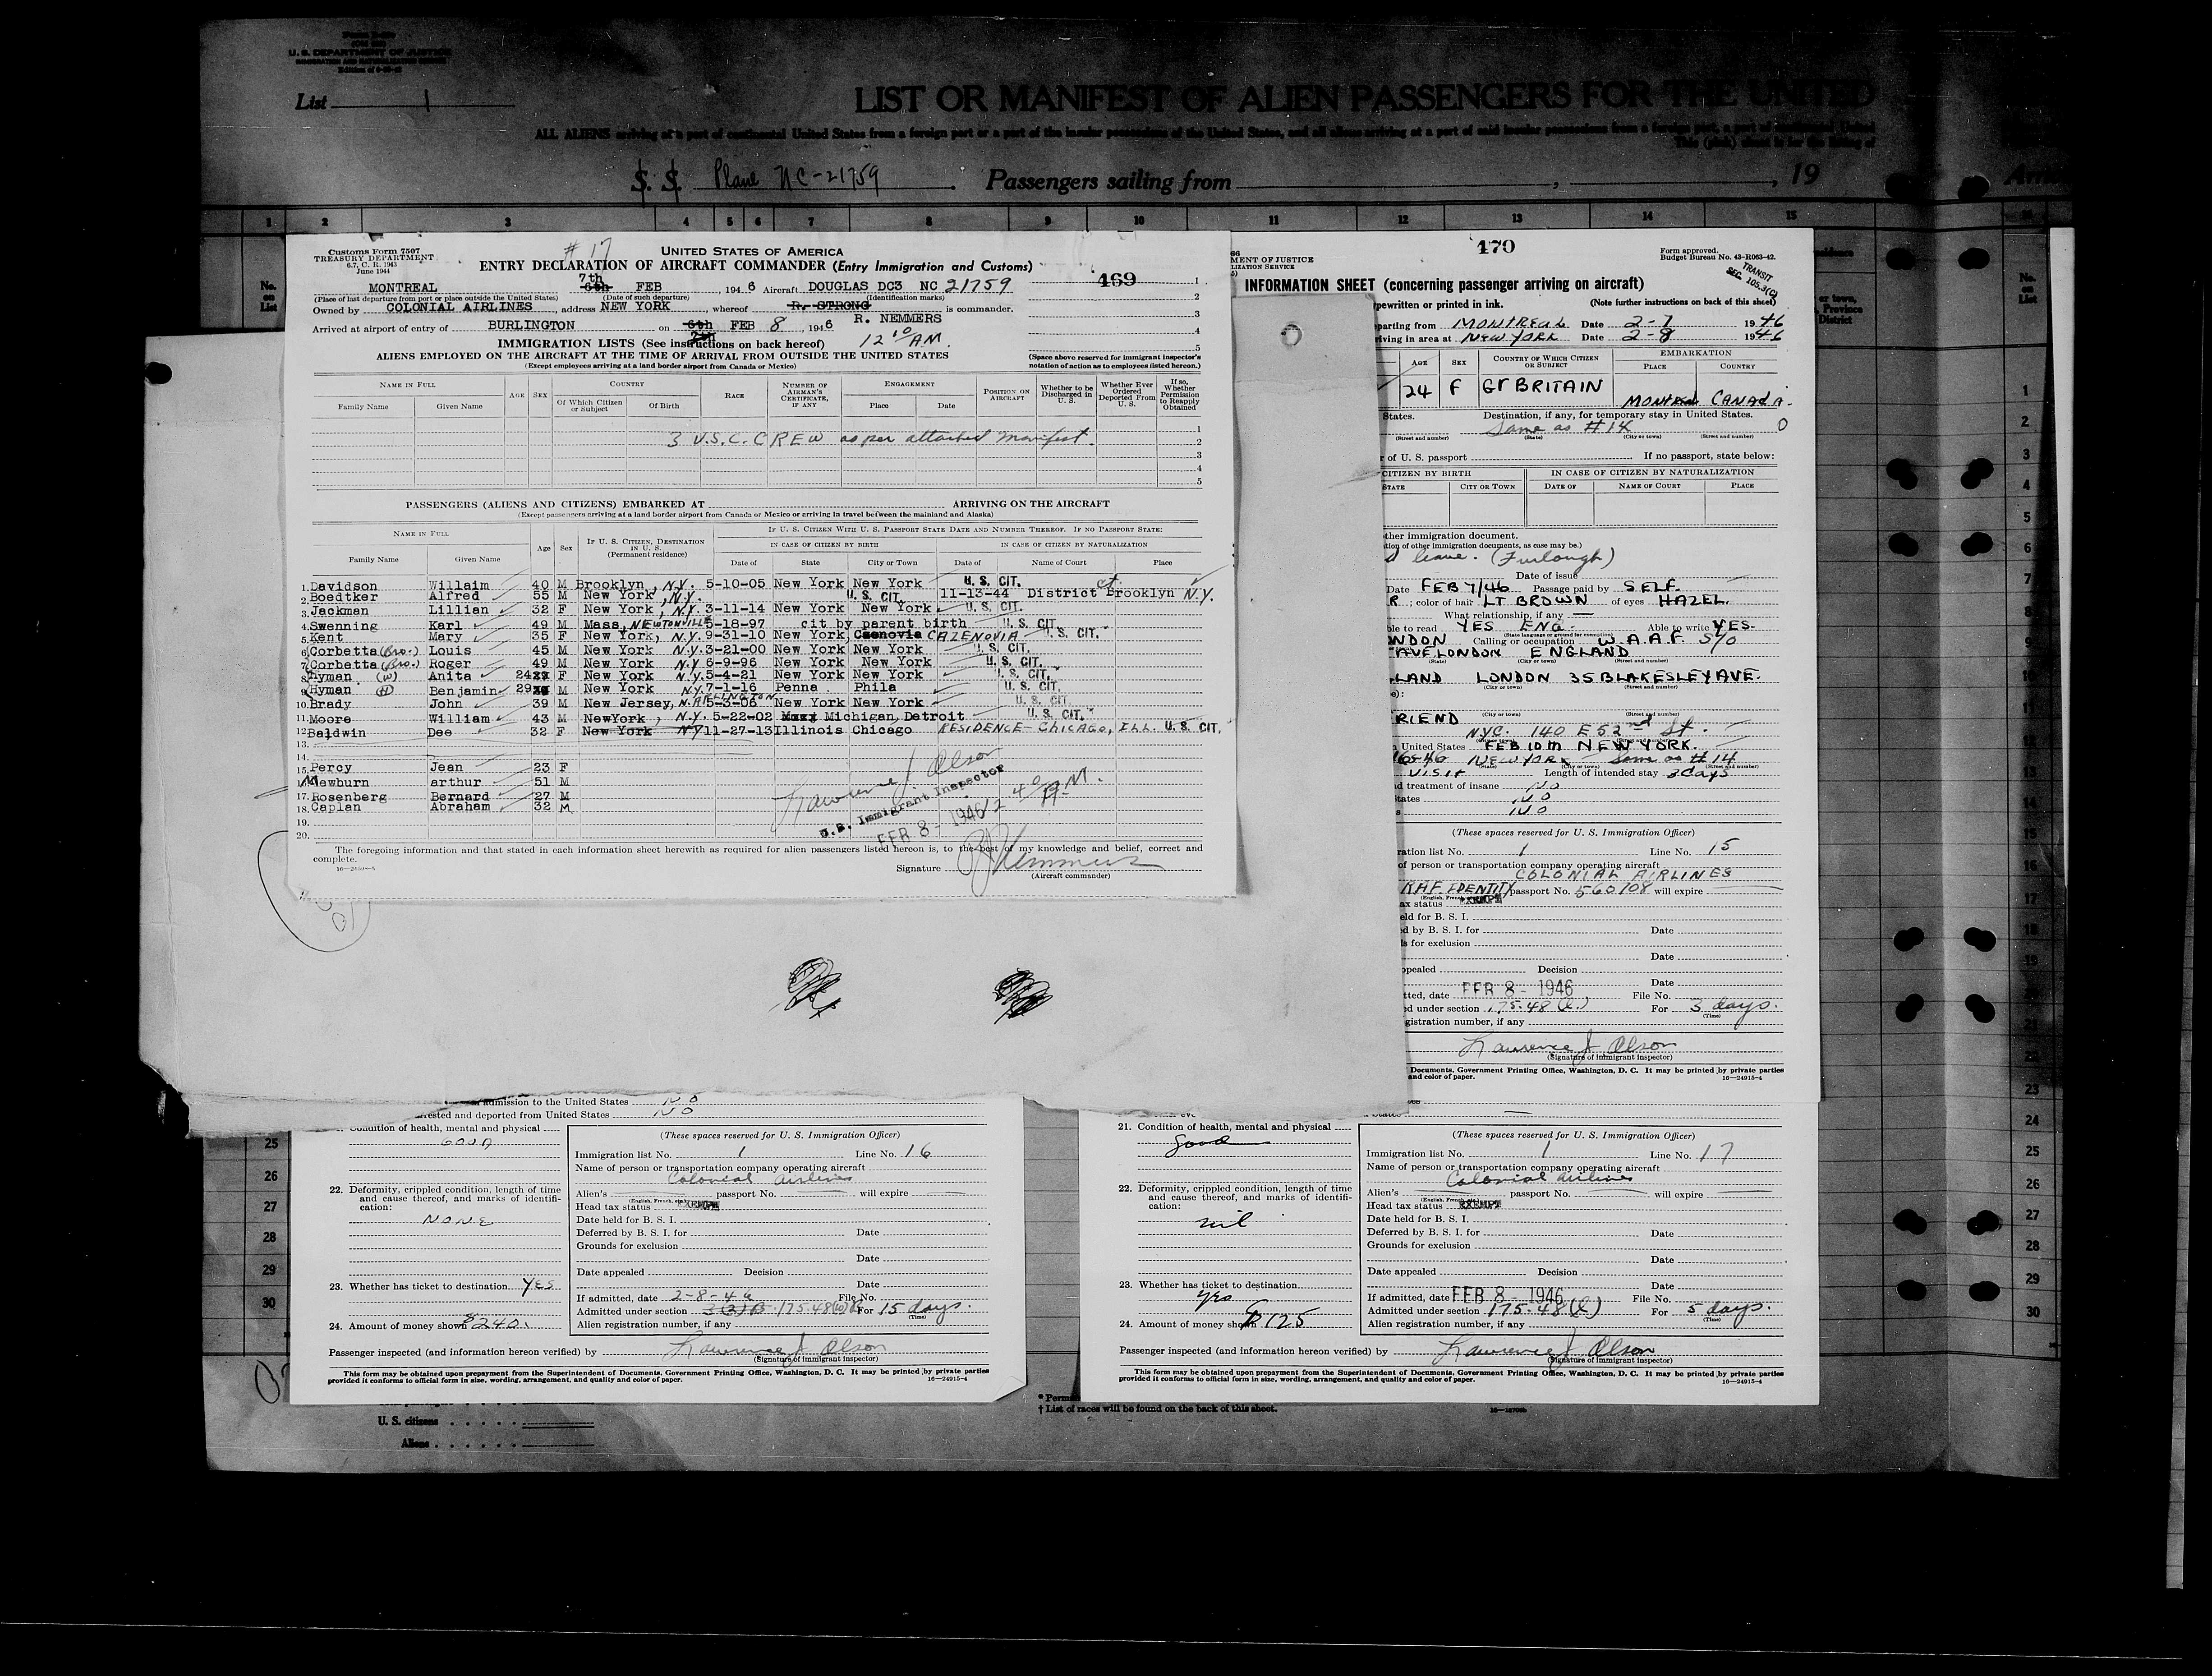 U. S. DEPARTMENT OF JUSTICE
List 1
LIST OR MANIFEST OF ALIEN PASSENGERS FOR THE UNITED
ALL ALIENS arriving at a port of continental United States from a foreign port or a port of the insular possessions of the United States, and all aliens arriving at a port of said insular possessions from a foreign port, a port of continental United
S. S. Plane NC-21759 Passengers sailing from , , 19
1 2 3 4 5 6 7 8 9 10 11 12 13 14 15
No. on List
Customs Form 7507
TREASURY DEPARTMENT
6.7, C. R. 1943
June 1944
# 17
UNITED STATES OF AMERICA
ENTRY DECLARATION OF AIRCRAFT COMMANDER (Entry Immigration and Customs)
469
MONTREAL 7th 6th FEB , 194 6 Aircraft DOUGLAS DC3 NC 21759
(Place of last departure from port or place outside the United States) (Date of such departure) (Identification marks)
Owned by COLONIAL AIRLINES, address NEW YORK, whereof R. STRONG is commander.
R. NEMMERS
Arrived at airport of entry of BURLINGTON on 6th FEB 8, 1946
12 10 AM.
IMMIGRATION LISTS (See instructions on back hereof)
ALIENS EMPLOYED ON THE AIRCRAFT AT THE TIME OF ARRIVAL FROM OUTSIDE THE UNITED STATES
(Except employees arriving at a land border airport from Canada or Mexico)
1
2
3
4
5
(Space above reserved for immigrant inspector's notation of action as to employees listed hereon.)
NAME IN FULL AGE SEX COUNTRY RACE NUMBER OF AIRMAN'S CERTIFICATE, IF ANY ENGAGEMENT POSITION ON AIRCRAFT Whether to be Discharged in U. S. Whether Ever Ordered Deported From U. S. If so, Whether Permission to Reapply Obtained
Family Name Given Name Of Which Citizen or Subject Of Birth Place Date
3 U.S.C. CREW as per attached manifest.
1
2
3
4
5
PASSENGERS (ALIENS AND CITIZENS) EMBARKED AT ARRIVING ON THE AIRCRAFT
(Except passengers arriving at a land border airport from Canada or Mexico or arriving in travel between the mainland and Alaska)
NAME IN FULL Age Sex IF U. S. CITIZEN, DESTINATION IN U. S. (Permanent residence) IF U. S. CITIZEN WITH U. S. PASSPORT STATE DATE AND NUMBER THEREOF. IF NO PASSPORT STATE:
IN CASE OF CITIZEN BY BIRTH IN CASE OF CITIZEN BY NATURALIZATION
Family Name Given Name Date of State City or Town Date of Name of Court Place
1. Davidson Willaim 40 M Brooklyn, N.Y. 5-10-05 New York New York U. S. CIT.
2. Boedtker Alfred 55 M New York, N.Y. U. S. CIT. 11-13-44 District ct. Brooklyn N.Y.
3. Jackman Lillian 32 F New York, N.Y. 3-11-14 New York New York U. S. CIT.
4. Swenning Karl 49 M Mass, NEWTONVILLE 5-18-97 cit by parent birth U. S. CIT.
5. Kent Mary 35 F New York, N.Y. 9-31-10 New York Csenovia CAZENOVIA U. S. CIT.
6. Corbetta (Bro.) Louis 45 M New York N.Y. 3-21-00 New York New York U. S. CIT.
7. Corbetta (Bro.) Roger 49 M New York N.Y 6-9-96 New York New York U. S. CIT.
8. Hyman (W) Anita 24 F New York N.Y. 5-4-21 New York New York U. S. CIT.
9. Hyman (H) Benjamin 29 M New York N.Y. 7-1-16 Penna Phila U. S. CIT.
10. Brady John 39 M New Jersey, N. ARLINGTON 5-3-06 New York New York U. S. CIT.
11. Moore William 43 M NewYork, N.Y. 5-22-02 Michigan, Detroit U. S. CIT.
12. Baldwin Dee 32 F New York NY 11-27-13 Illinois Chicago RESIDENCE - CHICAGO, ILL. U. S. CIT.
13.
14.
15. Percy Jean 23 F
16. Mewburn arthur 51 M
17. Rosenberg Bernard 27 M
18. Caplan Abraham 32 M
19.
20.
Lawrence J. Olson
U.S. Immigrant Inspector
FEB 8 - 1946 12 40 A.M.
The foregoing information and that stated in each information sheet herewith as required for alien passengers listed hereon is, to the best of my knowledge and belief, correct and complete.
Signature R Nemmers
(Aircraft commander)
470
Form approved.
Budget Bureau No. 43-R063-42.
MENT OF JUSTICE
LIZATION SERVICE
TRANSIT
SEC. 105.3(C)
INFORMATION SHEET (concerning passenger arriving on aircraft)
pewritten or printed in ink. (Note further instructions on back of this sheet)
parting from MONTREAL Date 2-7 1946
iving in area at NEW YORK Date 2-8 1946
AGE SEX COUNTRY OF WHICH CITIZEN OR SUBJECT EMBARKATION
PLACE COUNTRY
24 F Gr BRITAIN MONTREAL CANADA.
States. Destination, if any, for temporary stay in United States.
Same as #14 0
(Street and number) (State) (City or town) (Street and number)
r of U. S. passport If no passport, state below:
CITIZEN BY BIRTH IN CASE OF CITIZEN BY NATURALIZATION
STATE CITY OR TOWN DATE OF NAME OF COURT PLACE
ther immigration document.
tion of other immigration documents, as case may be.)
d leave. (Furlough)
Date of issue
Date FEB 7/46 Passage paid by SELF.
R ; color of hair LT BROWN of eyes HAZEL.
What relationship, if any
ble to read YES ENG. Able to write YES.
NDON Calling or occupation W.A.A.F. S/O
AVE LONDON ENGLAND
LAND LONDON 35 BLAKESLEY AVE.
RIEND
NYC. 140 E 52nd St.
n United States FEB 10th NEW YORK.
NEW YORK Same as #14
VISIT Length of intended stay 3 days
d treatment of insane NO
tates NO
s NO
(These spaces reserved for U. S. Immigration Officer)
ration list No. 1 Line No. 15
of person or transportation company operating aircraft
COLONIAL AIRLINES
RAF IDENTITY passport No. 560108 will expire
ax status EXEMPT
eld for B. S. I.
ed by B. S. I. for Date
ds for exclusion
Date
ppealed Decision
Date
tted, date FEB 8 - 1946 File No.
d under section 175.48 (L) For 3 days.
(Time)
gistration number, if any
Lawrence J Olson
(Signature of immigrant inspector)
Documents, Government Printing Office, Washington, D. C. It may be printed by private parties
and color of paper.
16-24915-4
admission to the United States NO
rested and deported from United States NO
Condition of health, mental and physical
GOOD
22. Deformity, crippled condition, length of time and cause thereof, and marks of identification:
NONE
23. Whether has ticket to destination YES
24. Amount of money shown $240.
(These spaces reserved for U. S. Immigration Officer)
Immigration list No. 1 Line No. 16
Name of person or transportation company operating aircraft
Colonial Airlines
Alien's passport No. will expire
(English, French, etc.)
Head tax status EXEMPT
Date held for B. S. I.
Deferred by B. S. I. for Date
Grounds for exclusion
Date
Date appealed Decision
Date
If admitted, date 2-8-46 File No.
Admitted under section 3(2) B 175.48 For 15 days.
(Time)
Alien registration number, if any
Passenger inspected (and information hereon verified) by Lawrence J Olson
(Signature of immigrant inspector)
This form may be obtained upon prepayment from the Superintendent of Documents, Government Printing Office, Washington, D. C. It may be printed by private parties
provided it conforms to official form in size, wording, arrangement, and quality and color of paper.
16-24915-4
21. Condition of health, mental and physical
Good
22. Deformity, crippled condition, length of time and cause thereof, and marks of identification:
nil
23. Whether has ticket to destination
yes
24. Amount of money shown $125
(These spaces reserved for U. S. Immigration Officer)
Immigration list No. 1 Line No. 17
Name of person or transportation company operating aircraft
Colonial Airlines
Alien's passport No. will expire
(English, French, etc.)
Head tax status EXEMPT
Date held for B. S. I.
Deferred by B. S. I. for Date
Grounds for exclusion
Date
Date appealed Decision
Date
If admitted, date FEB 8 - 1946 File No.
Admitted under section 175.48 (L) For 5 days.
(Time)
Alien registration number, if any
Passenger inspected (and information hereon verified) by Lawrence J Olson
(Signature of immigrant inspector)
This form may be obtained upon prepayment from the Superintendent of Documents, Government Printing Office, Washington, D. C. It may be printed by private parties
provided it conforms to official form in size, wording, arrangement, and quality and color of paper.
16-24915-4
U. S. citizens
Aliens
† List of races will be found on the back of this sheet.